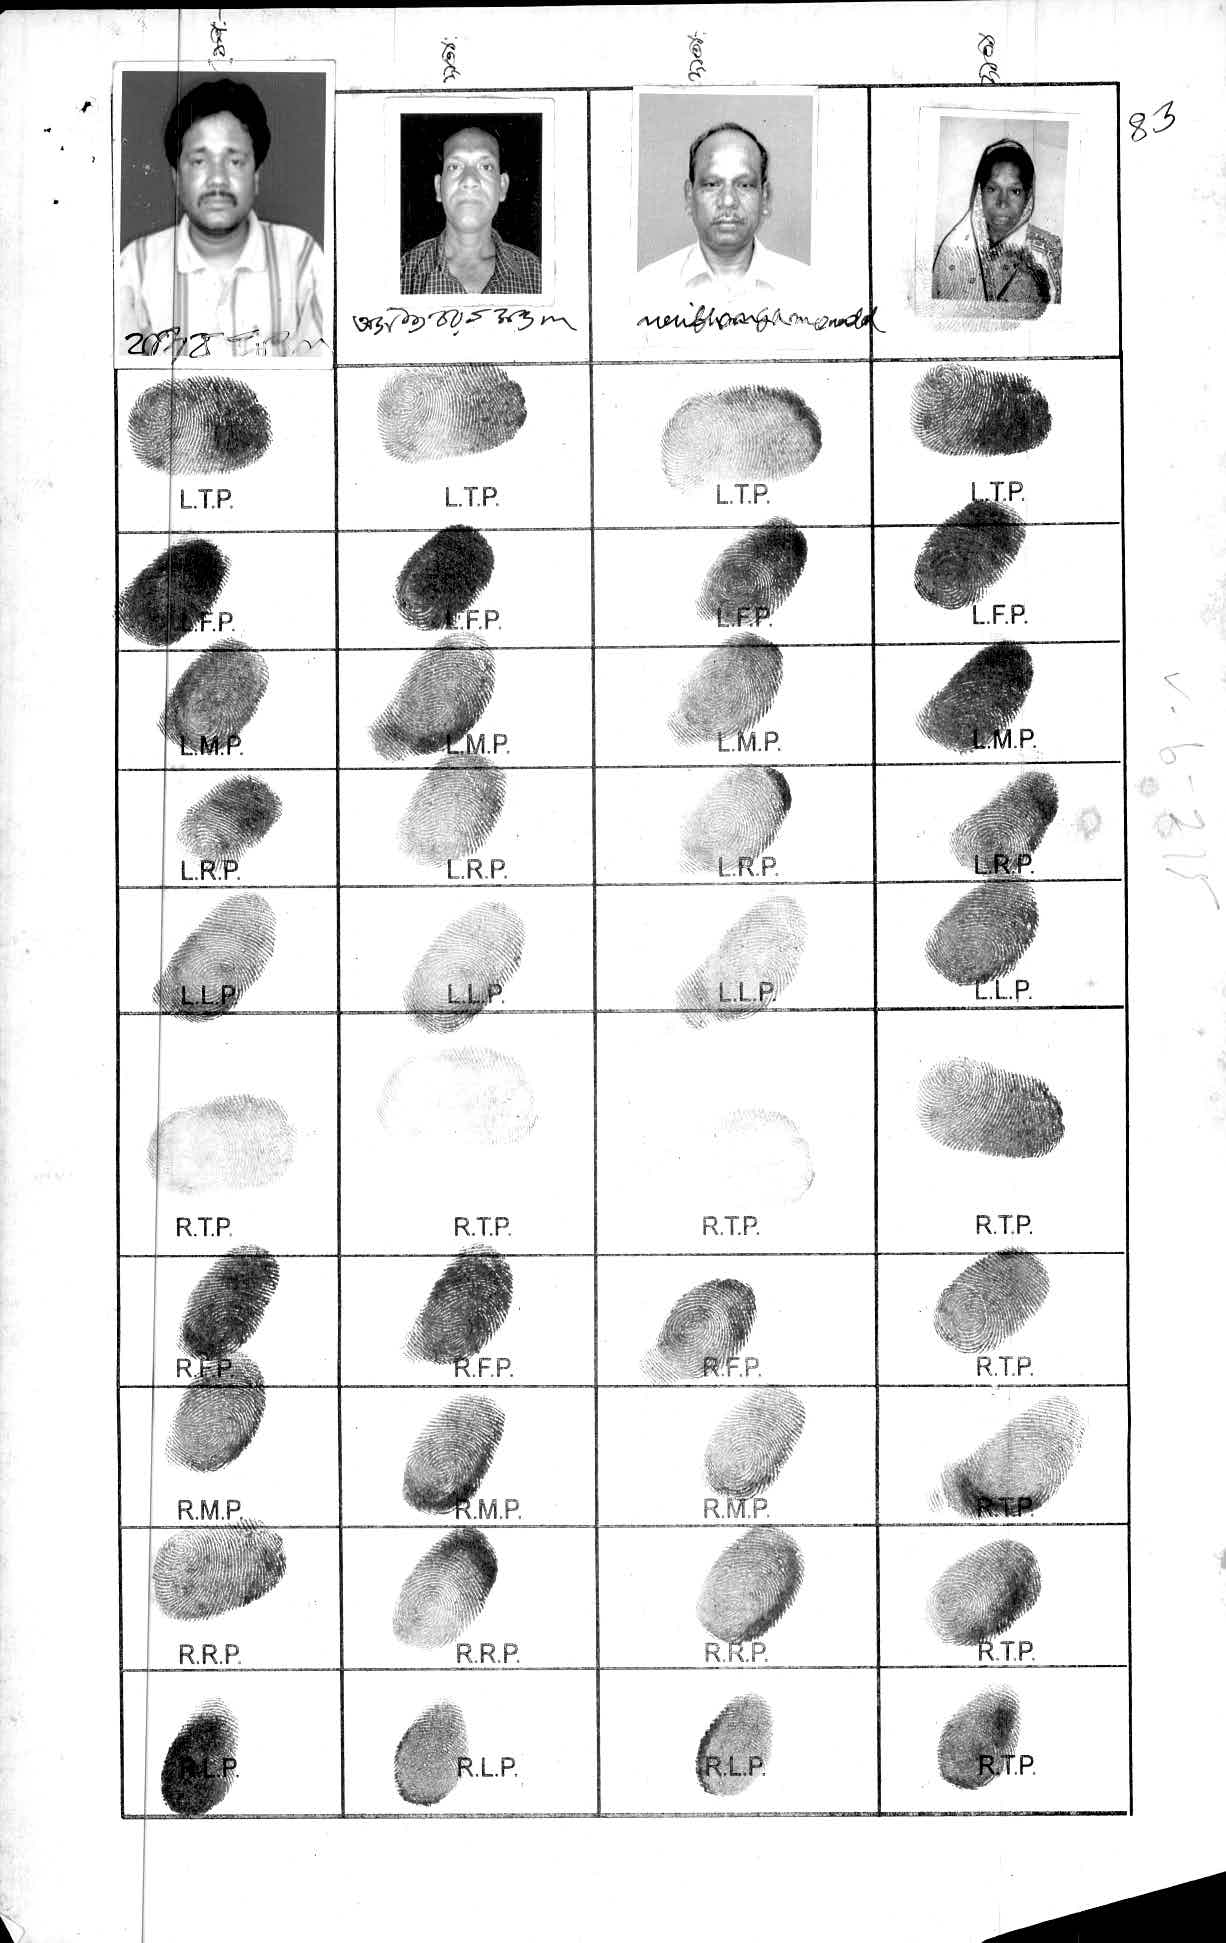 83
L.T.P. L.T.P. L.T.P. L.T.P.
L.F.P. L.F.P. L.F.P. L.F.P.
L.M.P. L.M.P. L.M.P. L.M.P.
L.R.P. L.R.P. L.R.P. L.R.P.
L.L.P. L.L.P. L.L.P. L.L.P.
R.T.P. R.T.P. R.T.P. R.T.P.
R.F.P. R.F.P. R.F.P. R.T.P.
R.M.P. R.M.P. R.M.P. R.T.P.
R.R.P. R.R.P. R.R.P. R.T.P.
R.L.P. R.L.P. R.L.P. R.T.P.